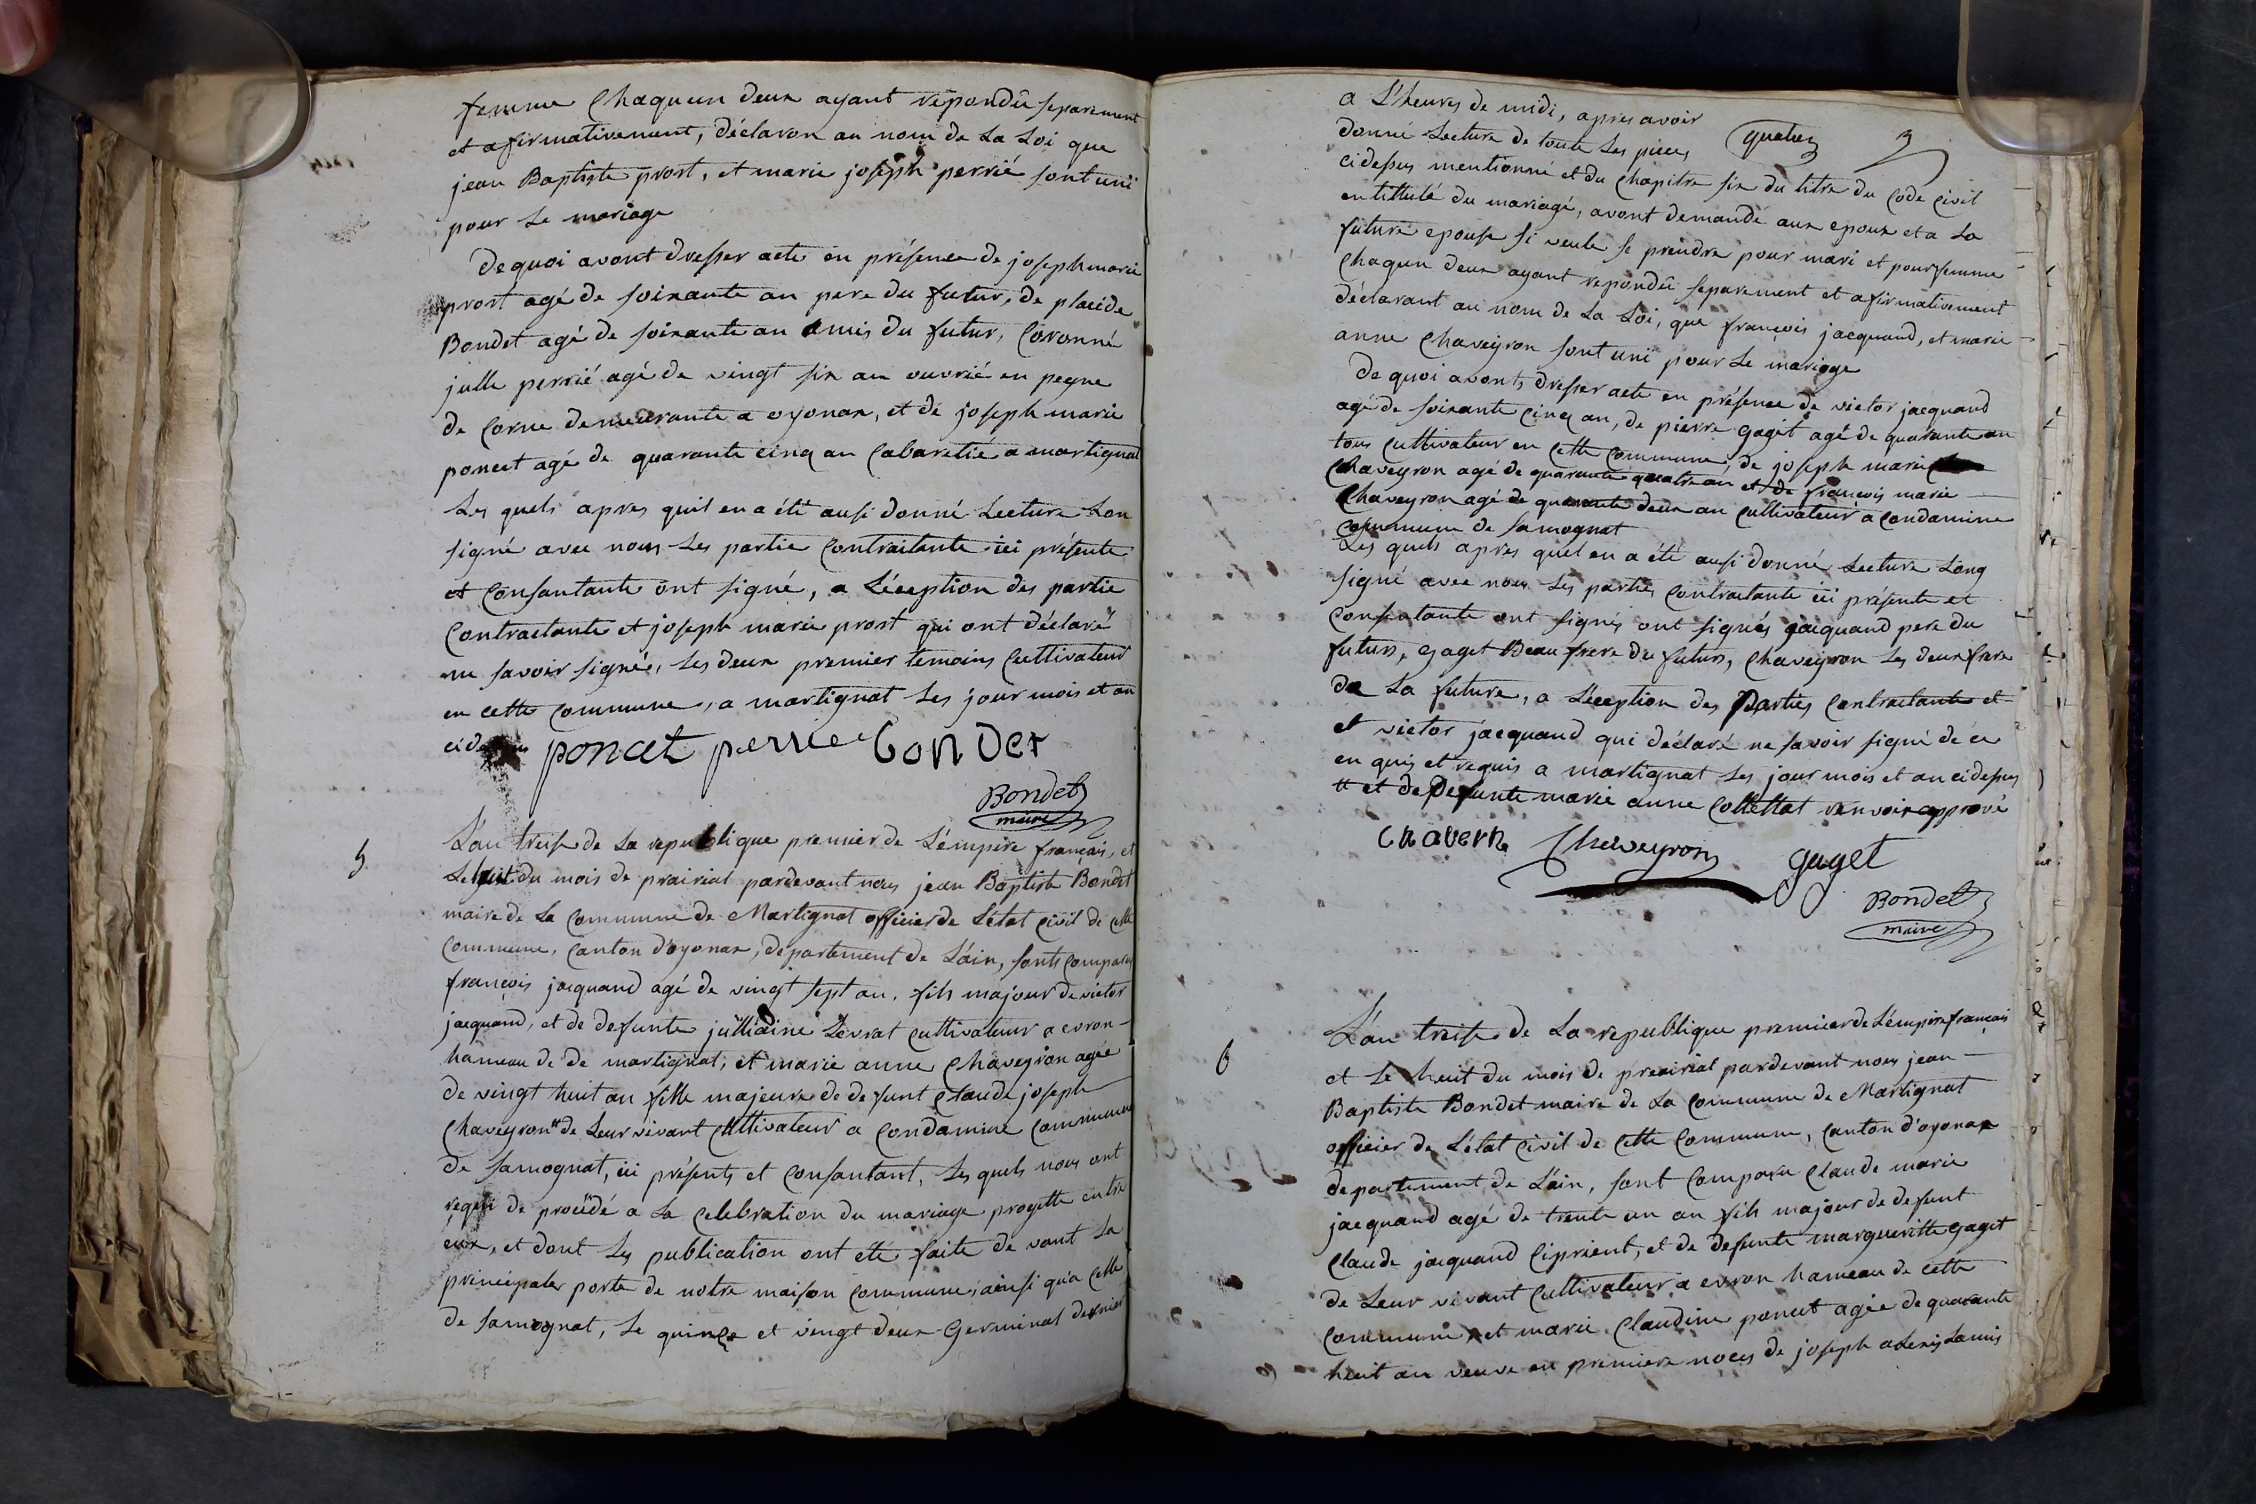 femme Chaqu'un deux ayant répondû separement
et afirmativement, déclaron au nom de La Loi que
jean Baptiste prost, et marie joseph perrié sont uni
pour Le mariage
De quoi avont dresser acte en présence de joseph marie
prost agé de soixante an pere du futur, de placide
Bondet agé de soixante an amis du futur, Coronné
julle perrié agé de vingt six an ouvrié en pegne
de Corne demeurante a oyonax, et de joseph marie
poncet agé de quarante cinq an Cabaretié a martignat
Les quels apres quil en a été ausi donné Lecture Lon
signé avec nous Les partie Contraitante ici présente
et Consantante ont signé, a Léception des partie
Contractante et joseph marie prost qui ont déclaré
ne savoir signée, Les deux premier temoins Cultivateur
en cette commune, a martignat Les jour mois et an
poncet perrie Bonder
Bondet
maire
5
L'an treise de La republique premier de L'émpire français, et
Le huit du mois de prairial pardevant nous jean Baptiste Bondet
maire de La Commune de Martignat officier de L'état Civil de Cette
Commune, Canton d'oyonax, departement de L'ain, sonts Comparu
françois jacquand agé de vingt sept an, fils majour de victor
jacquand, et de defunte julliaine Levrat Cultivateur a evron
hameau de de martignat, et marie anne Chaveyron agée
de vingt huit an fille majeure de defunt Claude joseph
Chaveyron tt de Leur vivant Cultivateur a Condamine Commune
de samognat, ici présents et Consantant, Les quels nous ont
requi de procédé a La Celebration du mariage progetté entre
eux, et dont Les publication ont été faite de vant La
principale porte de notre maison Commune, ainsi qu'a Celle
de samognat, Le quinze et vingt deux Germinal dernier
a L'heures de midi, apres avoir
donné Lecture de toute Les pieces quatres 3
cidessus mentionné et du Chapitre six du titre du Code Civil
entittulé du mariagé, avont demandé aux epoux et a La
future epouse si veule se prendre pour mari et pour femme
Chaqun deux ayant repondû separement et afirmativement
déclarant au nom de La Loi, que françois jacquand, et marie
anne Chaveyron sont uni pour Le mariage
De quoi avonts dresser acte en présence de victor jacquand
agé de soixante Cinq an, de pierre gaget agé de quarante an
tous Cultivateur en Cette Commune, de joseph marie
Chaveyron agé de quarante quatre an et de françois marie
Chaveyron agé de quarante deux an Cultivateur a Condamine
Commune de samognat
Les quels apres quel en a été ausi donné Lecture Long
signé avec nous Les parties Contractante ici présente et
Consantante ont signés ont signés jacquand pere du
futurs, gaget Beau frere du futurs, Chaveyron Les deux frere
de La future, a L'éception des Parties Contractante et
et victor jacquand qui déclaré ne savoir signé de ce
en quis et requis a martignat Les jour mois et an cidessus
tt et de Defunte marie anne Collettat renvoir apprové
Chavern Cheveyron gaget
Bondet
maire
6
L'an treise de La republique premier de L'émpire français
et Le huit du mois de preairial pardevant nous jean
Baptiste Bondet maire de La Commune de Martignat
officier de L'état Civil de Cette Commune, Canton d'oyonax
departement de L'ain, sont Comparu Claude marie
jacquand agé de trente un an fils majour de defunt
Claude jacquand Ciprient, et de defunte margueritte gaget
de Leur vivant Cultivateur a evron hameau de cette
Commune, et marie Claudine poncet agée de quarante
heuit an veuve en premiere noces de joseph alexis Lamis